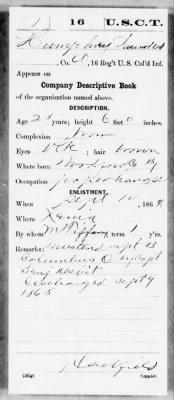 16 U.S.C.T.
Humphrey Saunders
, Co. A, 16 Reg't U. S. Col'd Inf.
Appears on
Company Descriptive Book
of the organization named above.
DESCRIPTION.
Age 23 years; height 6 feet 0 inches.
Complexion brown
Eyes blk; hair brown
Where born Woodford Co Ky
Occupation paper hanger
ENLISTMENT.
When Sept 10, 1864
Where Xenia
By whom M Tiffany; term 1 y'rs.
Remarks: mustered Sept 13
Columbus O by Capt
Benj Nesbit
Discharged Sept 9
1865
Copyist.